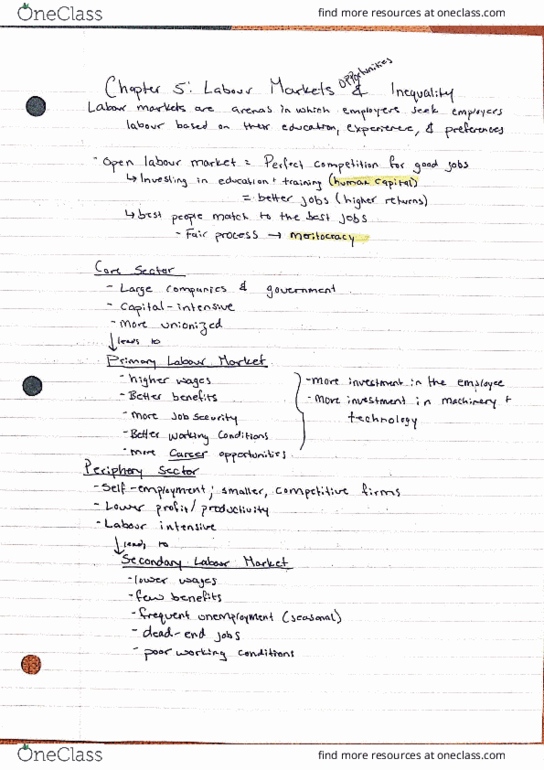 OneClass find more resources at oneclass.com
opportunities
Chapter 5: Labour Markets & Inequality
Labour markets are arenas in which employers seek employers
labour based on their education, experience, & preferences
- Open labour market = Perfect competition for good jobs
↳ Investing in education + training (human capital)
= better jobs (higher returns)
↳ best people match to the best jobs
- Fair process → meritocracy
Core Sector
- Large companies & government
- Capital-intensive
- More unionized
↓ leads to
Primary Labour Market
- higher wages
- Better benefits
- more Job security
- Better working conditions
- more Career opportunities
- more investment in the employee
- More investment in machinery +
technology
Periphery Sector
- Self-employment; smaller, competitive firms
- Lower profit/productivity
- Labour intensive
↓ leads to
Secondary Labour Market
- lower wages
- few benefits
- frequent unemployment (seasonal)
- dead-end jobs
- poor working conditions
OneClass find more resources at oneclass.com